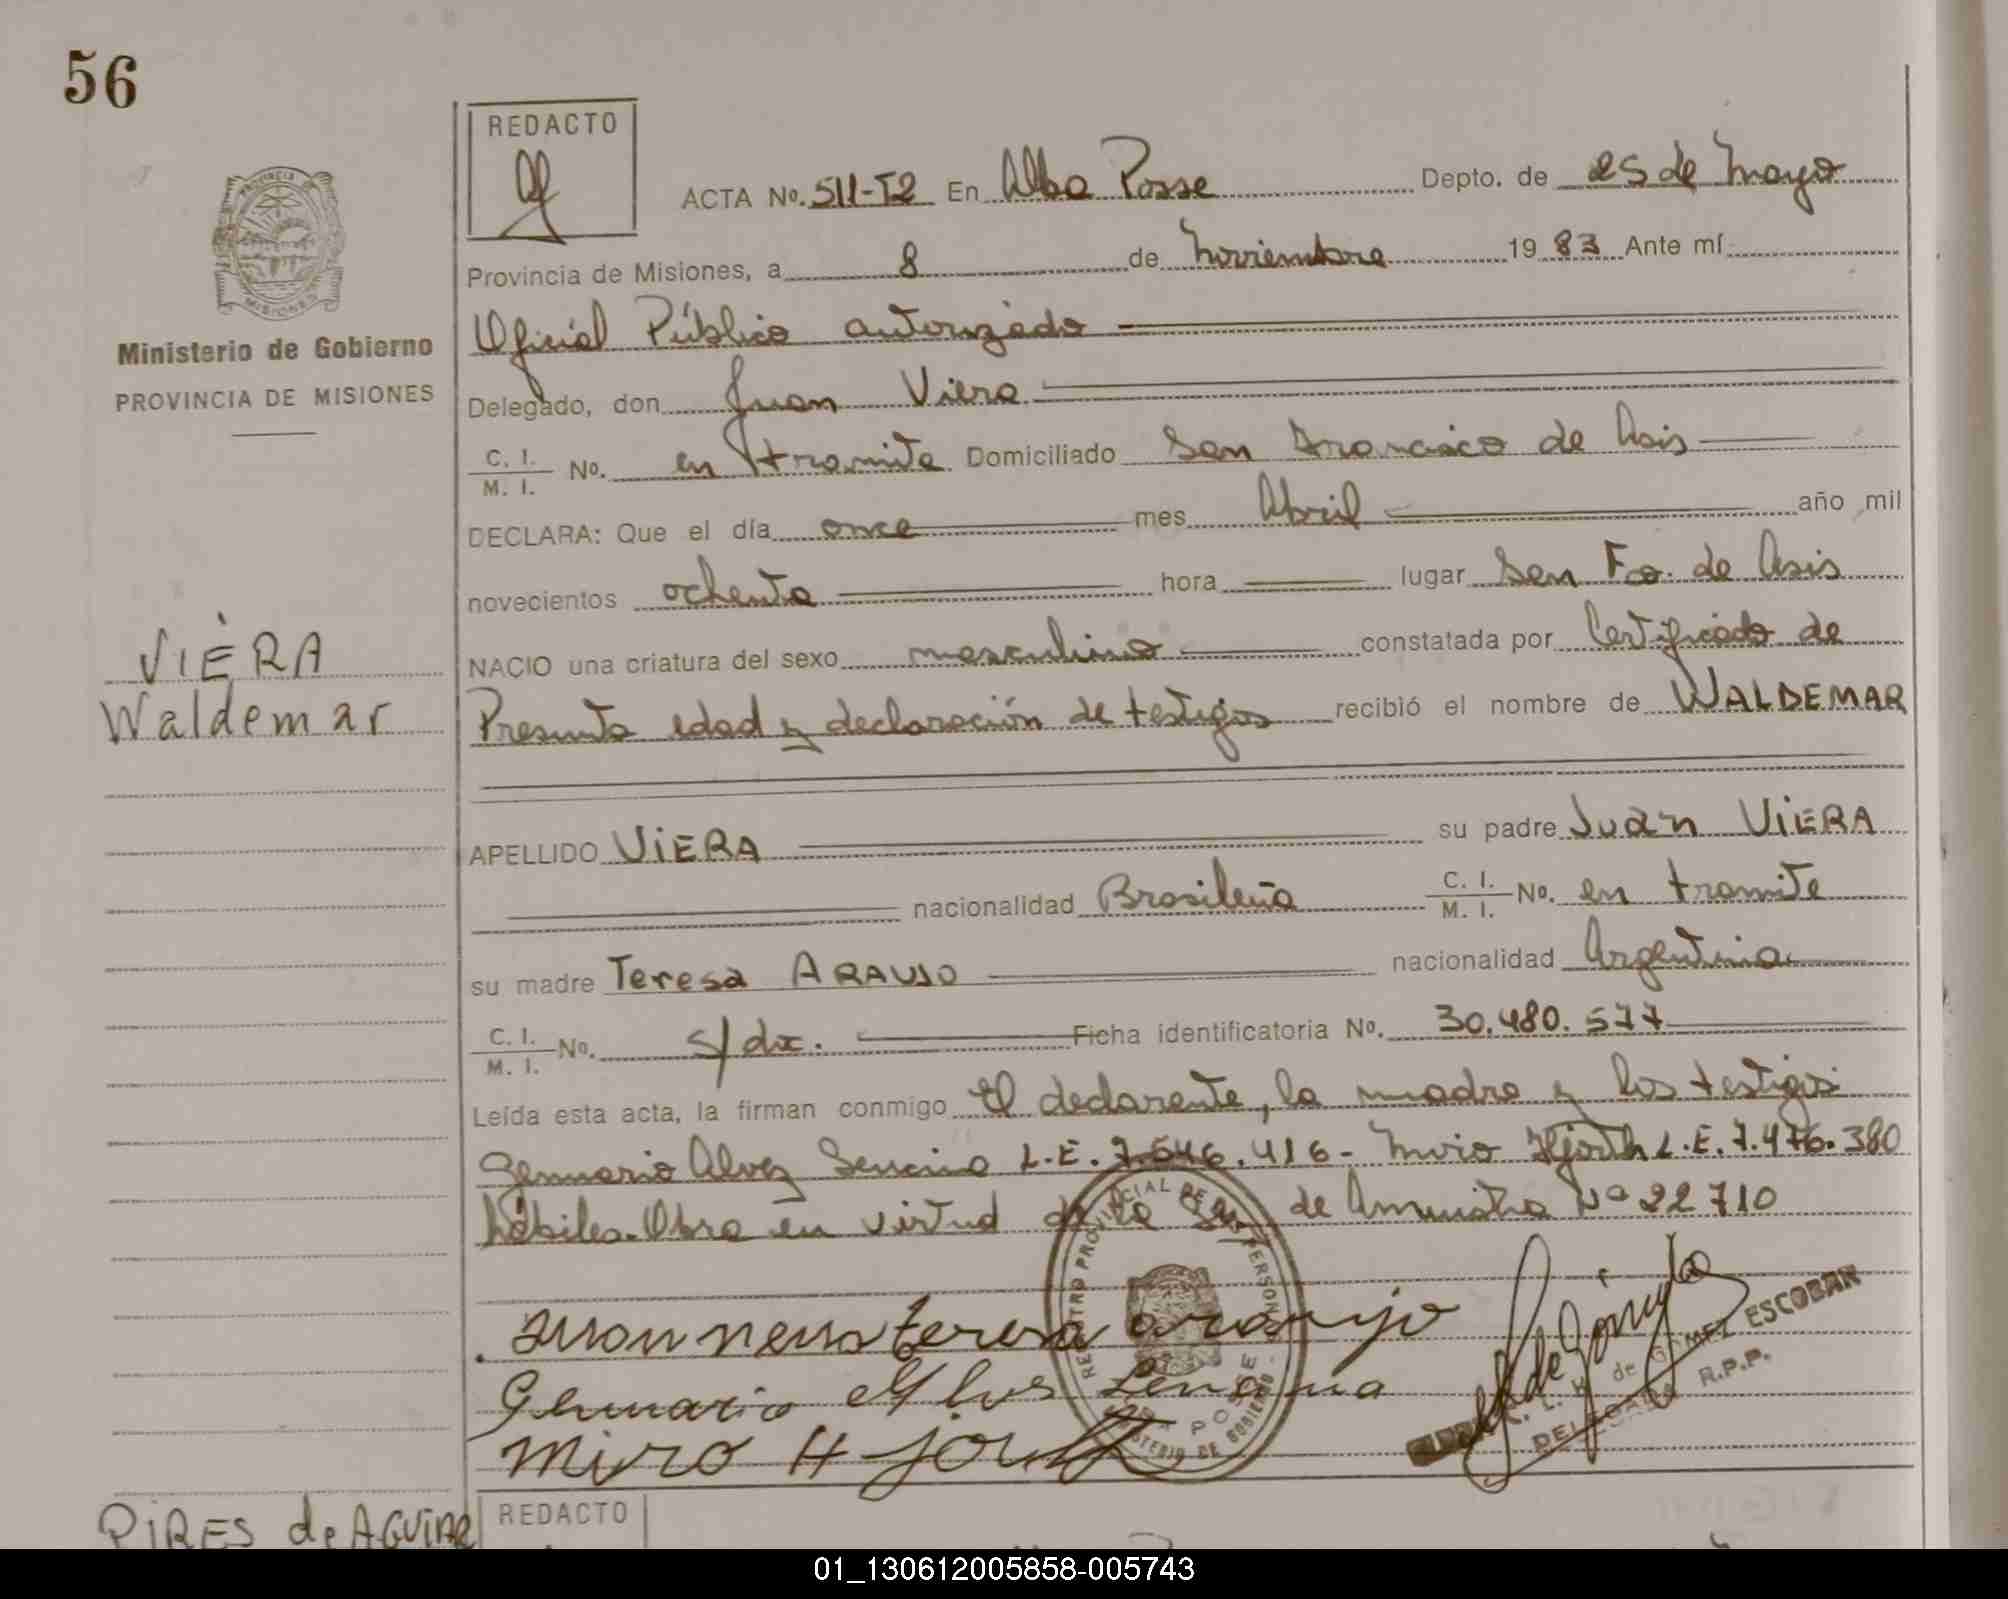 56
REDACTO
ACTA No. 511-T2 En Alba Posse Depto. de 25 de Mayo
Provincia de Misiones, a 8 de Noviembre 1983 Ante mí
Oficial Público autorizado
Delegado, don Juan Viera
C. I.
M. I. No. en tramite Domiciliado San Francisco de Asis
DECLARA: Que el día once mes Abril año mil
novecientos ochenta hora lugar San Fco. de Asis
NACIO una criatura del sexo masculino constatada por Certificado de
Presunta edad y declaración de testigos recibió el nombre de WALDEMAR
APELLIDO VIERA su padre Juan VIERA
nacionalidad Brasileña C. I.
M. I. No. en tramite
su madre Teresa ARAUJO nacionalidad Argentina
C. I.
M. I. No. s/dx. Ficha identificatoria No. 30.480.577
Leída esta acta, la firman conmigo El declarante, la madre y los testigos
Genuario Alvez L.E. 7.546.416- L.E. 7.476.380
hábiles. Obra en virtud de la Ley de Amnistia Nº 22710
teresa araujo
Genuario
Miro H
REGISTRO PROVINCIAL DE LAS PERSONAS
ALBA POSSE
MINISTERIO DE GOBIERNO
de GOMEZ ESCOBAR
DELEGADA R.P.P.
PROVINCIA DE
MISIONES
Ministerio de Gobierno
PROVINCIA DE MISIONES
VIERA
Waldemar
PIRES de AGUIAR
REDACTO
01_130612005858-005743